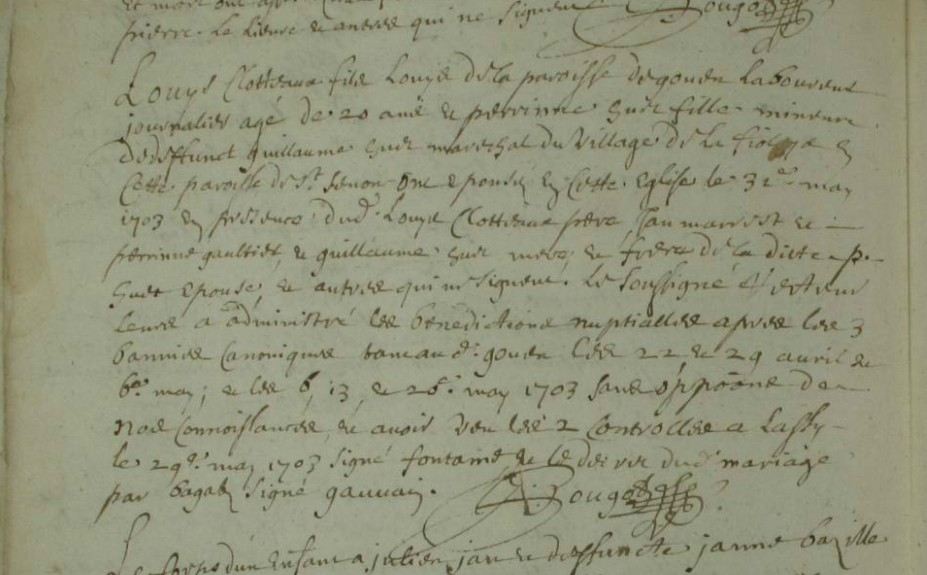 pierre le lieure & autres qui ne signent
Louys Clotteaux fils Louys de la paroisse de gouen laboureur
journalier agé de 20 ans & perrinne huet fille mineure
de deffunct guillaume huet mareschal du village de la &
cette paroisse de St senou ont epousé en cette Eglise le 31e may
1703 en presence dud. Louys Clotteaux frere, Jan &
perrinne gaultier, & guillaume huet mere, & frere de la dicte p.
huet epouse, & autres qui ne signent. Le soussigné Recteur
leurs a administré les benedictions nuptialles apres les 3
bannies canoniques tant aud. gouen les 22 & 29 avril &
6e may; & les 6, 13, & 20e may 1703 sans opp̄one de
nos connoissances, & avoir veu les 2 controllés a Lassy
le 29e may 1703 signé fontaine, & le decret dud. mariage
par signé gauvain.
Le corps d'un Enfant a julien jan & deffuncte janne baville